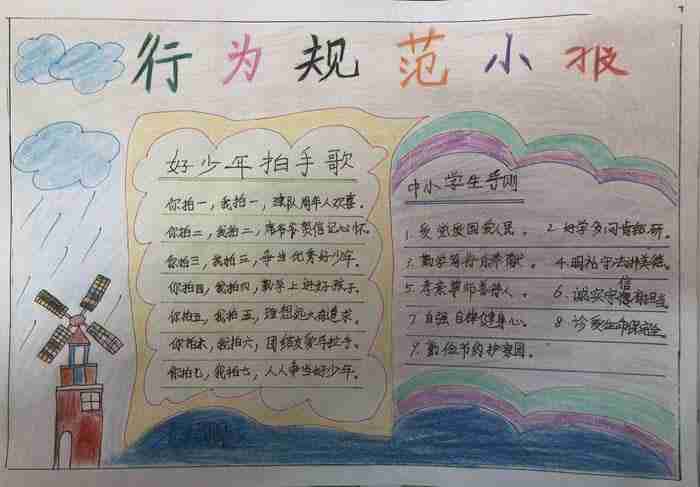 行为规范小报
好少年拍手歌
你拍一，我拍一，建队周年人欢喜。
你拍二，我拍二，席爷爷贺信记心怀。
你拍三，我拍三，争当优秀好少年。
你拍四，我拍四，勤学上进好孩子。
你拍五，我拍五，理想远大有追求。
你拍六，我拍六，团结友爱手拉手。
你拍七，我拍七，人人争当好少年。
中小学生守则
1. 爱党爱国爱人民。 2. 好学多问肯钻研。
3. 勤劳笃行乐奉献。 4. 明礼守法讲美德。
5. 孝亲尊师善待人。 6. 诚实守信有担当。
7. 自强自律健身心。 8. 珍爱生命保安全。
9. 勤俭节约护家园。